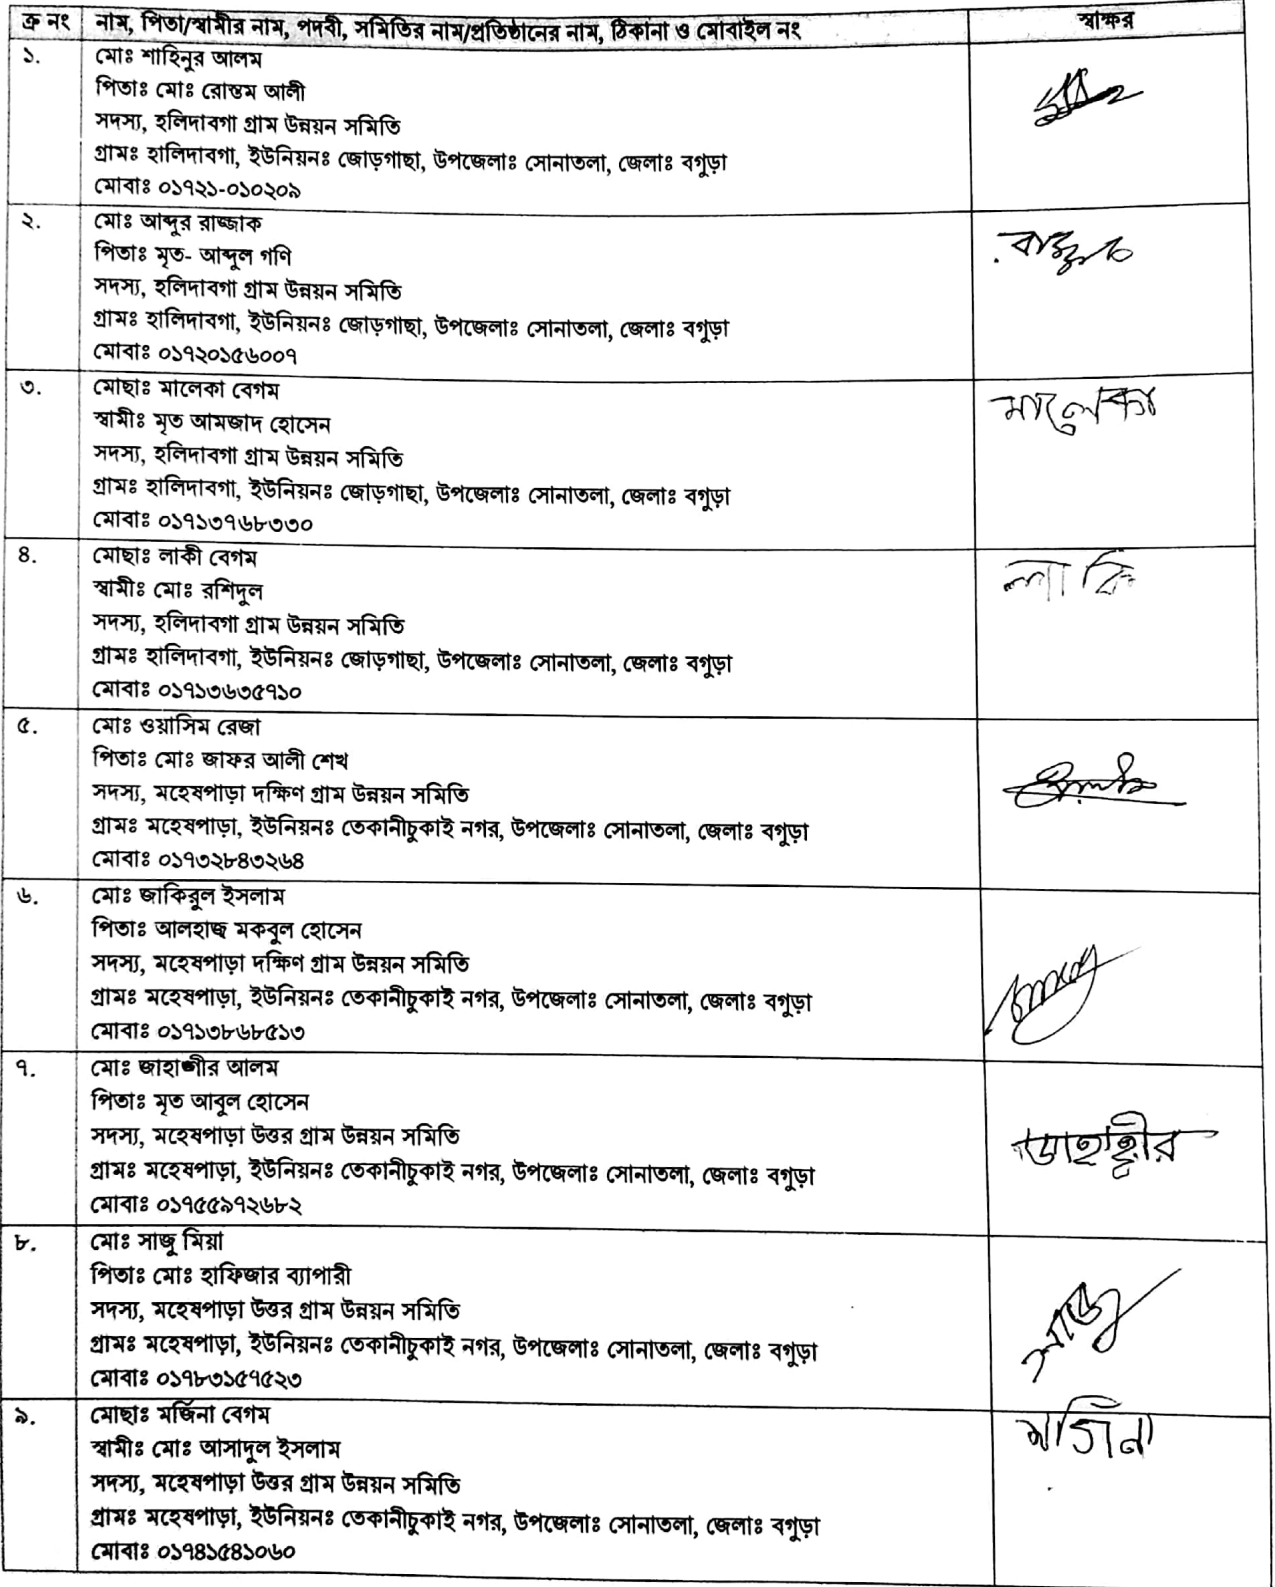 ক্র নং নাম, পিতা/স্বামীর নাম, পদবী, সমিতির নাম/প্রতিষ্ঠানের নাম, ঠিকানা ও মোবাইল নং স্বাক্ষর
১. মোঃ শাহিনুর আলম
পিতাঃ মোঃ রোস্তম আলী
সদস্য, হলিদাবগা গ্রাম উন্নয়ন সমিতি
গ্রামঃ হালিদাবগা, ইউনিয়নঃ জোড়গাছা, উপজেলাঃ সোনাতলা, জেলাঃ বগুড়া
মোবাঃ ০১৭২১-০১০২০৯
২. মোঃ আব্দুর রাজ্জাক
পিতাঃ মৃত- আব্দুল গণি
সদস্য, হলিদাবগা গ্রাম উন্নয়ন সমিতি
গ্রামঃ হালিদাবগা, ইউনিয়নঃ জোড়গাছা, উপজেলাঃ সোনাতলা, জেলাঃ বগুড়া
মোবাঃ ০১৭২০১৫৬০০৭
৩. মোছাঃ মালেকা বেগম মালেকা
স্বামীঃ মৃত আমজাদ হোসেন
সদস্য, হলিদাবগা গ্রাম উন্নয়ন সমিতি
গ্রামঃ হালিদাবগা, ইউনিয়নঃ জোড়গাছা, উপজেলাঃ সোনাতলা, জেলাঃ বগুড়া
মোবাঃ ০১৭১৩৭৬৮৩৩০
৪. মোছাঃ লাকী বেগম লাকি
স্বামীঃ মোঃ রশিদুল
সদস্য, হলিদাবগা গ্রাম উন্নয়ন সমিতি
গ্রামঃ হালিদাবগা, ইউনিয়নঃ জোড়গাছা, উপজেলাঃ সোনাতলা, জেলাঃ বগুড়া
মোবাঃ ০১৭১৩৬৩৫৭১০
৫. মোঃ ওয়াসিম রেজা
পিতাঃ মোঃ জাফর আলী শেখ
সদস্য, মহেষপাড়া দক্ষিণ গ্রাম উন্নয়ন সমিতি
গ্রামঃ মহেষপাড়া, ইউনিয়নঃ তেকানীচুকাই নগর, উপজেলাঃ সোনাতলা, জেলাঃ বগুড়া
মোবাঃ ০১৭৩২৮৪৩২৬৪
৬. মোঃ জাকিরুল ইসলাম
পিতাঃ আলহাজ্ব মকবুল হোসেন
সদস্য, মহেষপাড়া দক্ষিণ গ্রাম উন্নয়ন সমিতি
গ্রামঃ মহেষপাড়া, ইউনিয়নঃ তেকানীচুকাই নগর, উপজেলাঃ সোনাতলা, জেলাঃ বগুড়া
মোবাঃ ০১৭১৩৮৬৮৫১৩
৭. মোঃ জাহাঙ্গীর আলম
পিতাঃ মৃত আবুল হোসেন
সদস্য, মহেষপাড়া উত্তর গ্রাম উন্নয়ন সমিতি জাহাঙ্গীর
গ্রামঃ মহেষপাড়া, ইউনিয়নঃ তেকানীচুকাই নগর, উপজেলাঃ সোনাতলা, জেলাঃ বগুড়া
মোবাঃ ০১৭৫৫৯৭২৬৮২
৮. মোঃ সাজু মিয়া
পিতাঃ মোঃ হাফিজার ব্যাপারী
সদস্য, মহেষপাড়া উত্তর গ্রাম উন্নয়ন সমিতি
গ্রামঃ মহেষপাড়া, ইউনিয়নঃ তেকানীচুকাই নগর, উপজেলাঃ সোনাতলা, জেলাঃ বগুড়া সাজু
মোবাঃ ০১৭৮৩১৫৭৫২৩
৯. মোছাঃ মর্জিনা বেগম মর্জিনা
স্বামীঃ মোঃ আসাদুল ইসলাম
সদস্য, মহেষপাড়া উত্তর গ্রাম উন্নয়ন সমিতি
গ্রামঃ মহেষপাড়া, ইউনিয়নঃ তেকানীচুকাই নগর, উপজেলাঃ সোনাতলা, জেলাঃ বগুড়া
মোবাঃ ০১৭৪১৫৪১০৬০